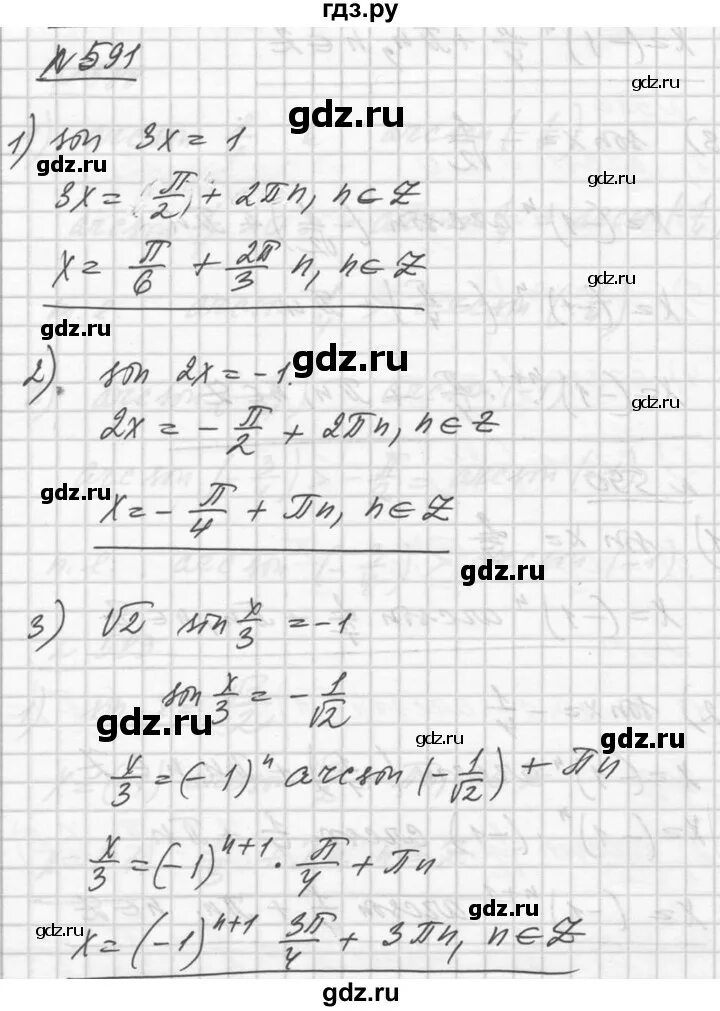 гдз.ру
№591
gdz.ru
gdz.ru
1) sin 3x = 1
gdz.ru
gdz.ru
3x = π/2 + 2πn, n ∈ Z
x = π/6 + 2π/3 n, n ∈ Z
gdz.ru
gdz.ru
gdz.ru
2) sin 2x = -1.
gdz.ru
2x = -π/2 + 2πn, n ∈ Z
gdz.ru
x = -π/4 + πn, n ∈ Z
gdz.ru
3) √2 sin x/3 = -1
sin x/3 = -1/√2
gdz.ru
gdz.ru
gdz.ru
x/3 = (-1)^n arcsin(-1/√2) + πn
x/3 = (-1)^{n+1} · π/4 + πn
gdz.ru
gdz.ru
x = (-1)^{n+1} 3π/4 + 3πn, n ∈ Z
gdz.ru